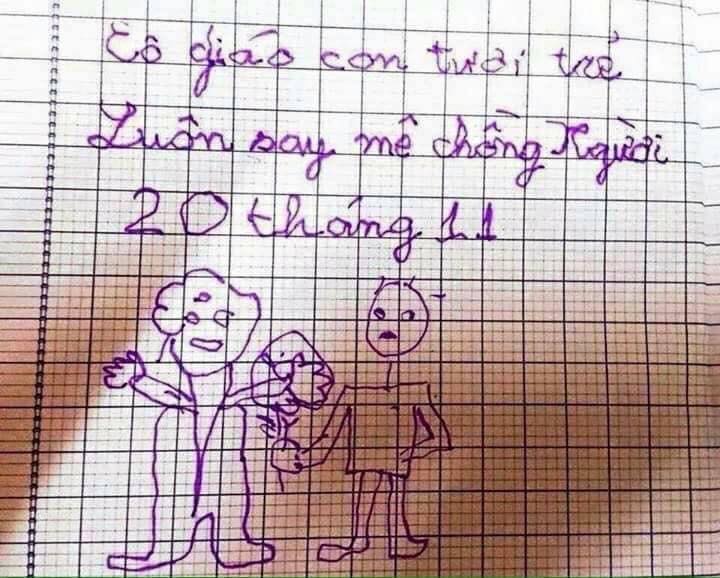 Cô giáo con tươi trẻ
Luôn say mê chồng Người
20 tháng 11